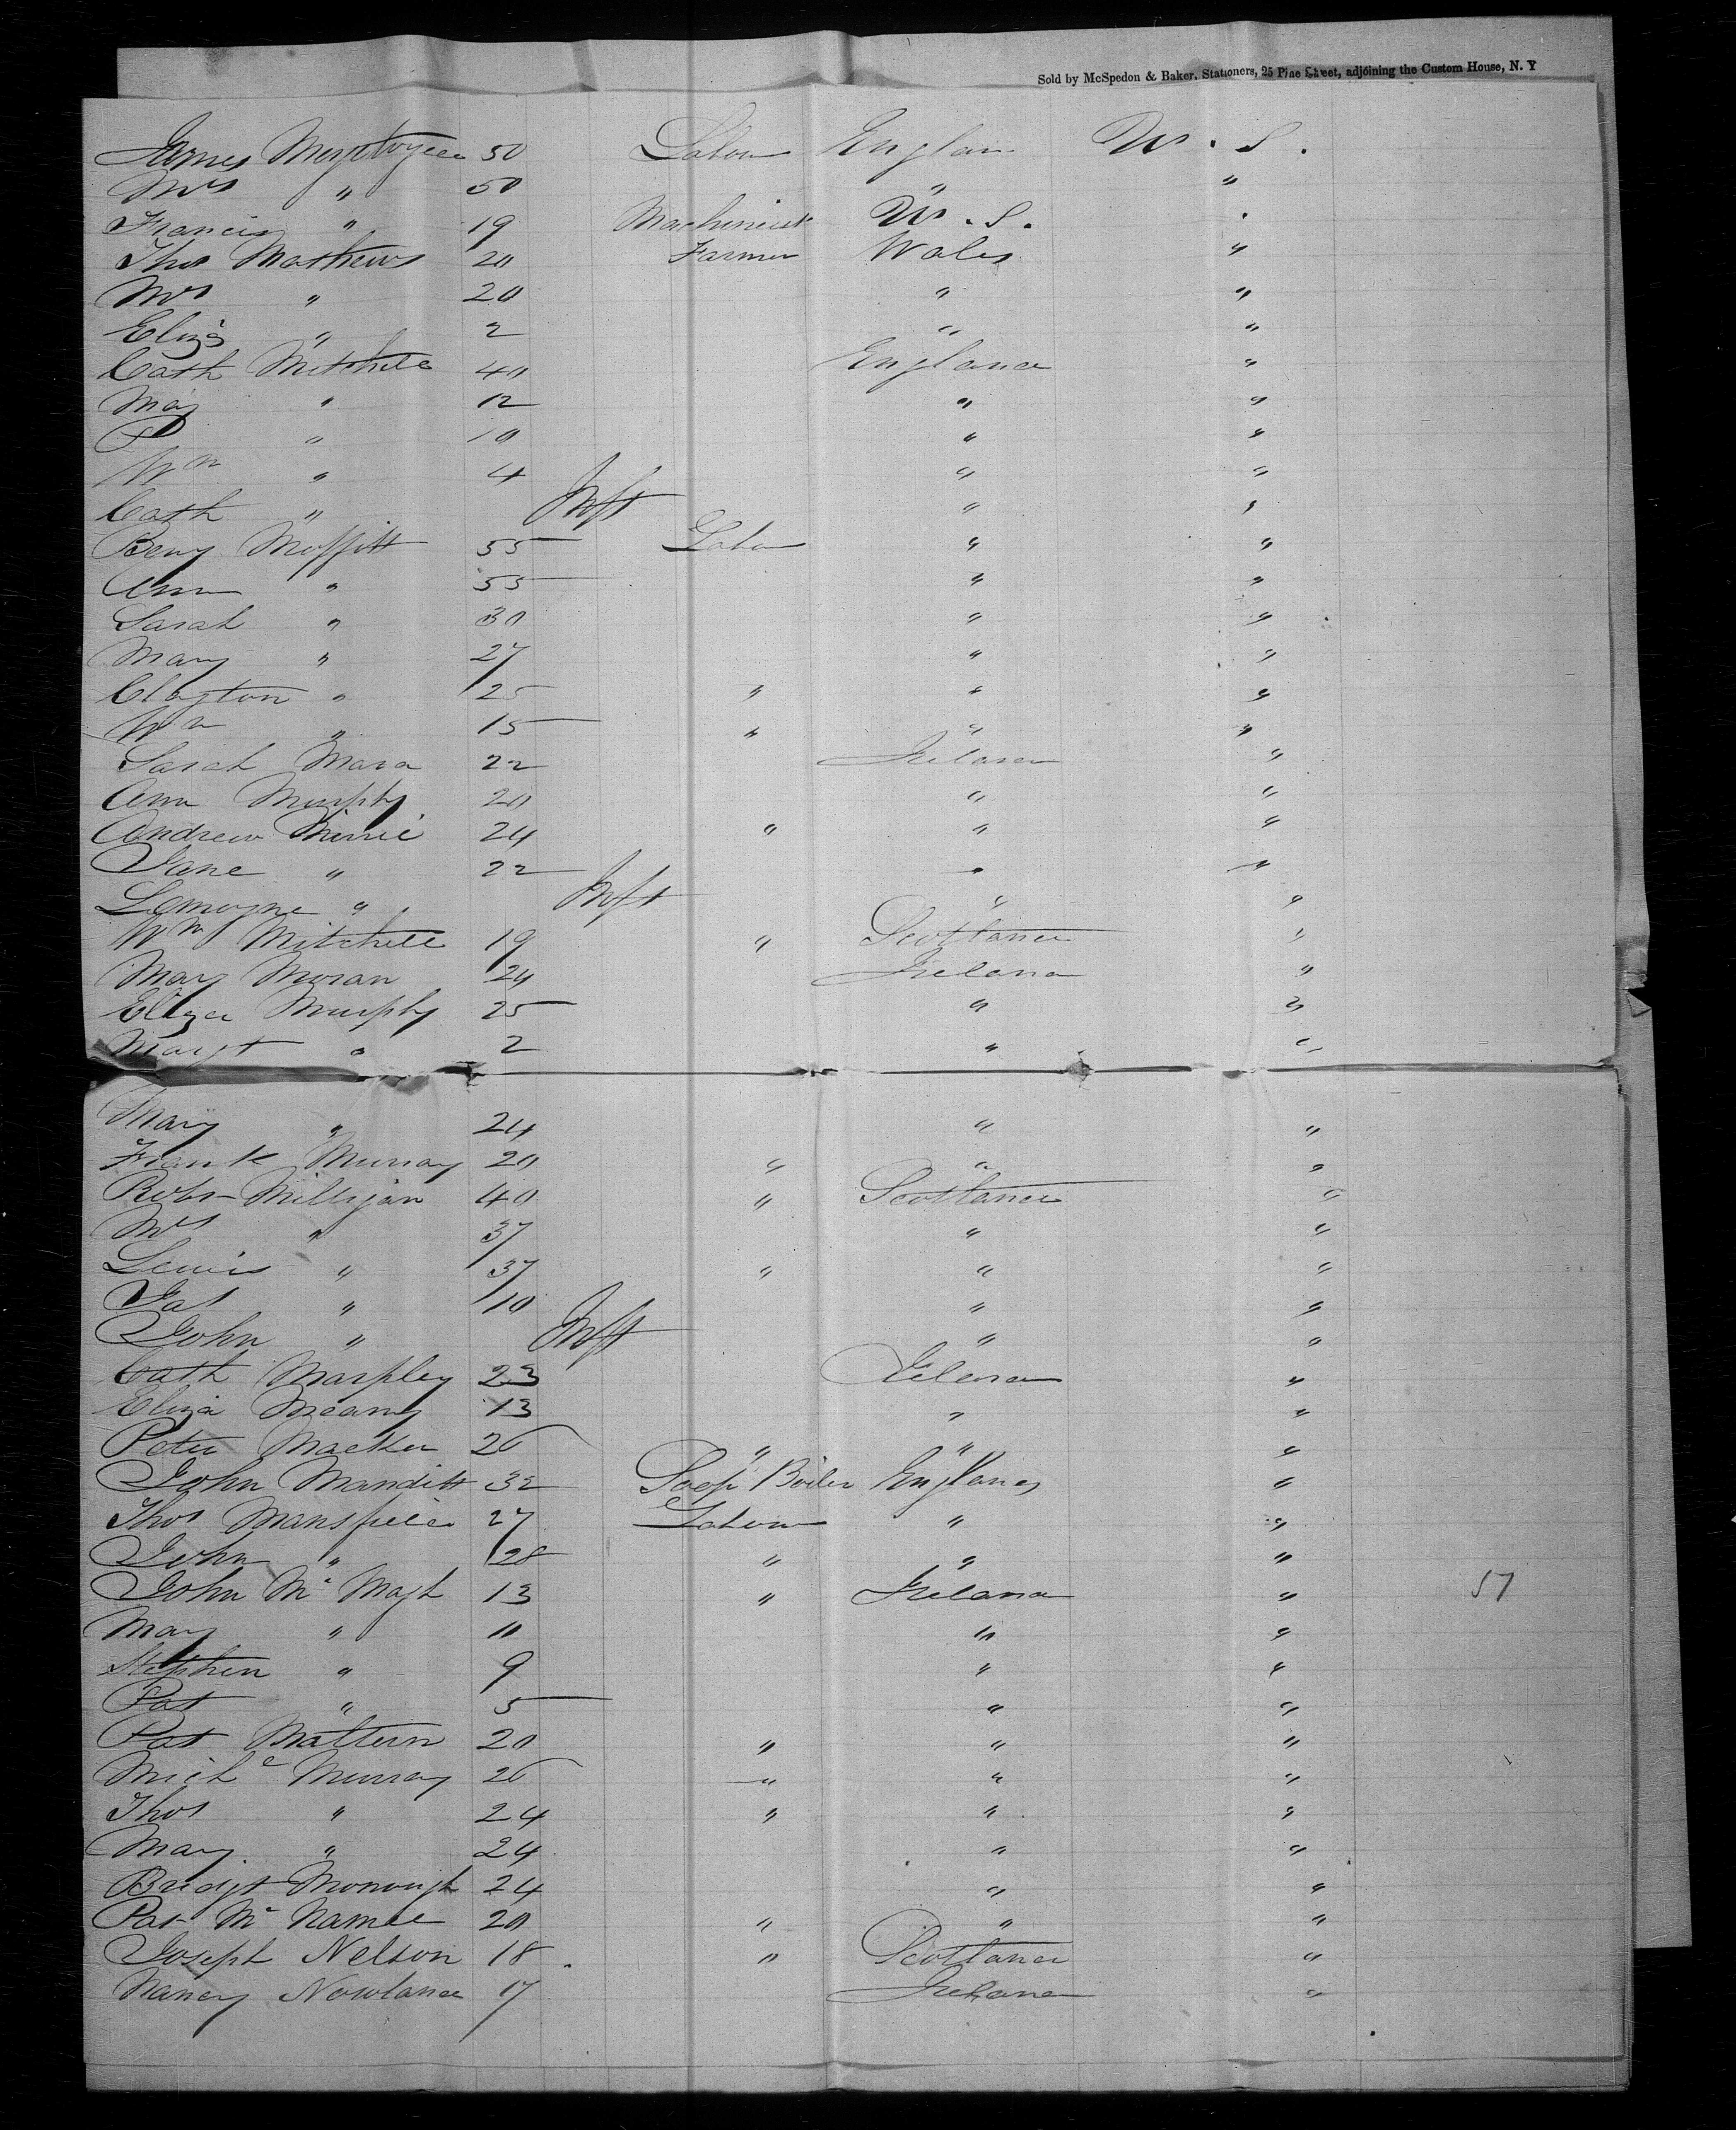 Sold by McSpedon & Baker, Stationers, 25 Pine Street, adjoining the Custom House, N. Y
James 50 Labor Englan U. S.
Mrs " 50 " "
Francis " 19 Machinist U. S. "
Thos Mathews 20 Farmer Wales "
Mrs " 20 " "
Eliza " 2 " "
Cath Mitchell 40 England "
May " 12 " "
P " 10 " "
Wm " 4 " "
Cath " Inft " "
Benj Moffitt 55 Labor " "
Ann " 55 " "
Sarah " 30 " "
Mary " 27 " "
Clayton " 25 " " "
Wm " 15 " " "
Sarah Mara 22 Ireland "
Ann Murphy 20 " "
Andrew 24 " " "
Jane " 22 " "
" Inft " "
Wm Mitchell 19 " Scotland "
Mary Moran 24 Ireland "
Eliza Murphy 25 " "
Margt " 2 " "
Mary " 24 " "
Frank Murray 20 " " "
Robt Milligan 40 " Scotland "
Mrs " 37 " "
Lewis " 37 " " "
Jas " 10 " "
John " Inft " "
Cath Murphey 23 Ireland "
Eliza Meany 13 " "
Peter Macken 26 " " "
John Manditt 32 Soap Boiler England "
Thos Mansfield 27 Labour " "
John " 28 " " "
John Mc 13 " Ireland " 57
Mary " 11 " "
Stephen " 9 " "
Pat " 5 " "
Pat Mattern 20 " " "
Michl Murray 26 " " "
Thos " 24 " " "
Mary " 24 " "
Bridgt Monough 24 " "
Pat Mc Namee 20 " " "
Joseph Nelson 18 " Scotland "
Nancy Nowland 17 Ireland "